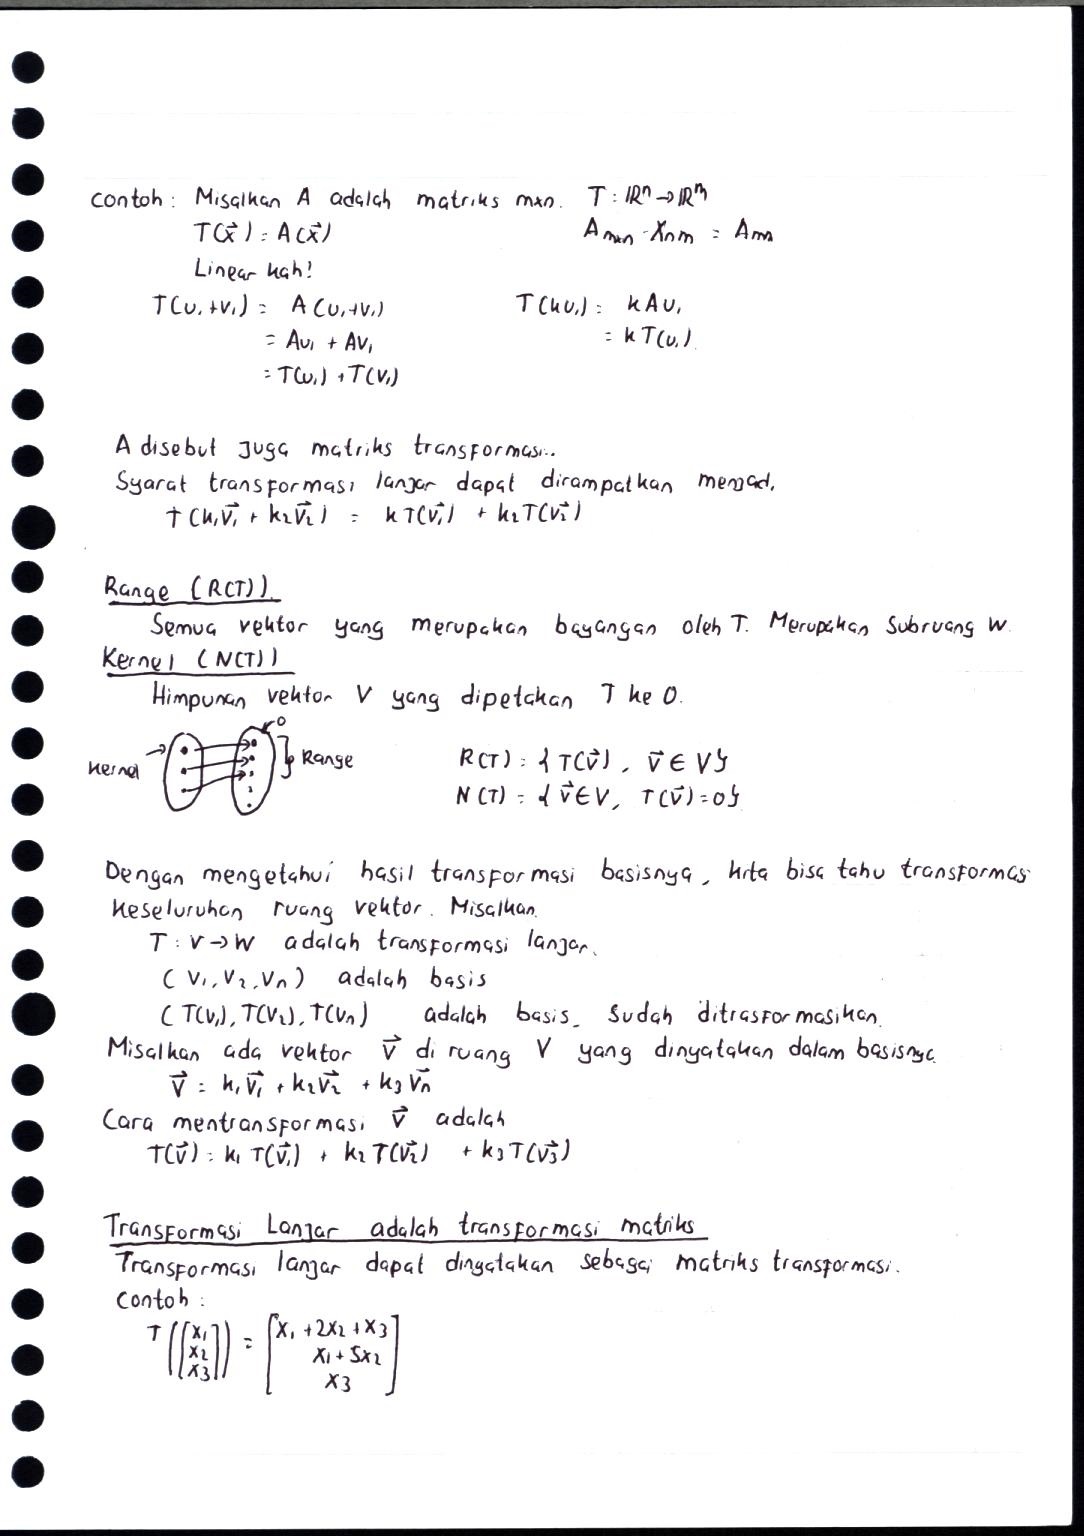 contoh : Misalkan A adalah matriks mxn. T : ℝⁿ → ℝᵐ
T(x⃗) = A(x⃗) Aₘₓₙ · Xₙₘ = Aₘₙ
Linear kah!
T(u₁+v₁) = A(u₁+v₁) T(ku₁) = kAu₁
= Au₁ + Av₁ = kT(u₁).
= T(u₁) + T(v₁)
A disebut juga matriks transformasi..
Syarat transformasi lanjar dapat dirampatkan menjadi,
T(k₁v⃗₁ + k₂v⃗₂) = kT(v⃗₁) + k₂T(v⃗₂)
Range (R(T)).
Semua vektor yang merupakan bayangan oleh T. Merupakan Subruang W.
Kernel (N(T))
Himpunan vektor V yang dipetakan T ke 0.
0
Kernel Range R(T) = {T(v⃗), v⃗ ∈ V}
N(T) = {v⃗ ∈ V, T(v⃗) = 0}
Dengan mengetahui hasil transformasi basisnya, kita bisa tahu transformasi
keseluruhan ruang vektor. Misalkan.
T : V → W adalah transformasi lanjar.
(v₁, v₂, vₙ) adalah basis
(T(v₁), T(v₂), T(vₙ) adalah basis sudah ditrasformasikan.
Misalkan ada vektor v⃗ di ruang V yang dinyatakan dalam basisnya.
v⃗ = k₁v⃗₁ + k₂v⃗₂ + k₃v⃗ₙ
Cara mentransformasi v⃗ adalah
T(v⃗) = k₁T(v⃗₁) + k₂T(v⃗₂) + k₃T(v⃗₃)
Transformasi Lanjar adalah transformasi matriks
Transformasi lanjar dapat dinyatakan sebagai matriks transformasi.
Contoh :
T([x₁ = [x₁ + 2x₂ + x₃
x₂ x₁ + 5x₂
x₃]) x₃]